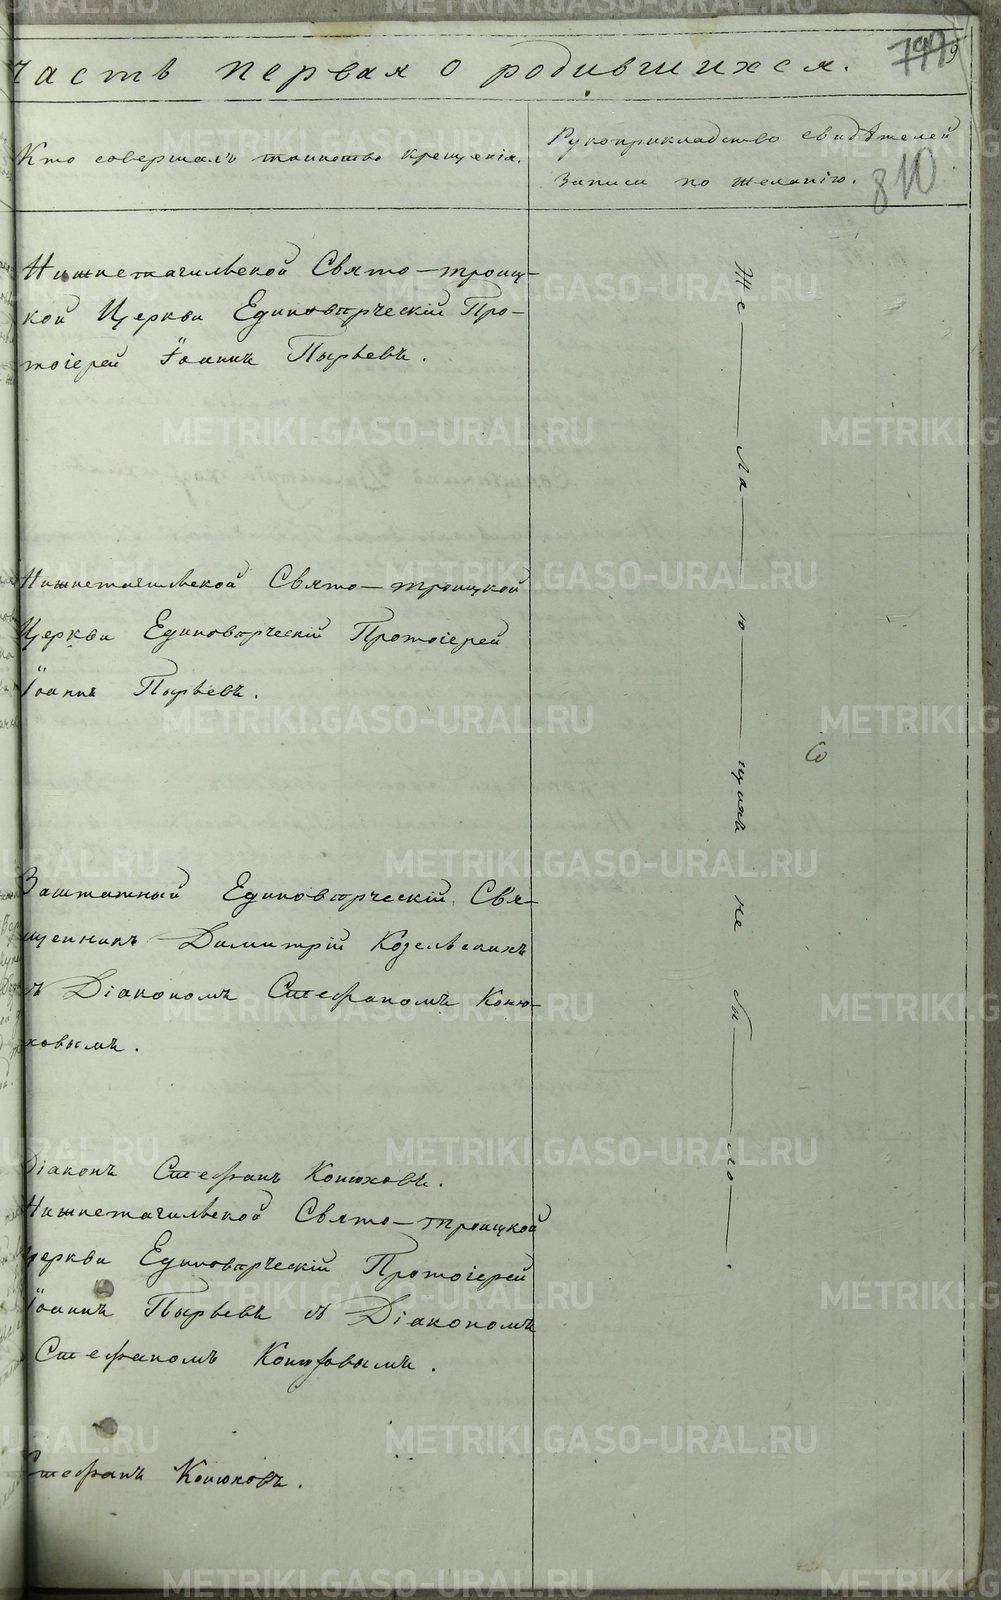 Часть первая о родившихся.
799
Кто совершалъ таинство крещенія.
Рукоприкладство свидѣтелей
записи по желанію.
810
Нижнетагильской Свято-троиц-
кой Церкви Единовѣрческій Про-
тоіерей Іоаннъ Пырьевъ.
Нижнетагильской Свято-троицкой
Церкви Единовѣрческій Протоіерей
Іоаннъ Пырьевъ.
Заштатный Единовѣрческій Свя-
щенникъ Димитрій Козельскихъ
съ Діакономъ Стефаномъ Коню-
ховымъ.
Діаконъ Стефанъ Конюховъ.
Нижнетагильской Свято-троицкой
Церкви Единовѣрческій Протоіерей
Іоаннъ Пырьевъ съ Діакономъ
Стефаномъ Конюховымъ.
Стефанъ Конюховъ.
Же—ла—ю—щихъ не бы—ло.
METRIKI.GASO-URAL.RU